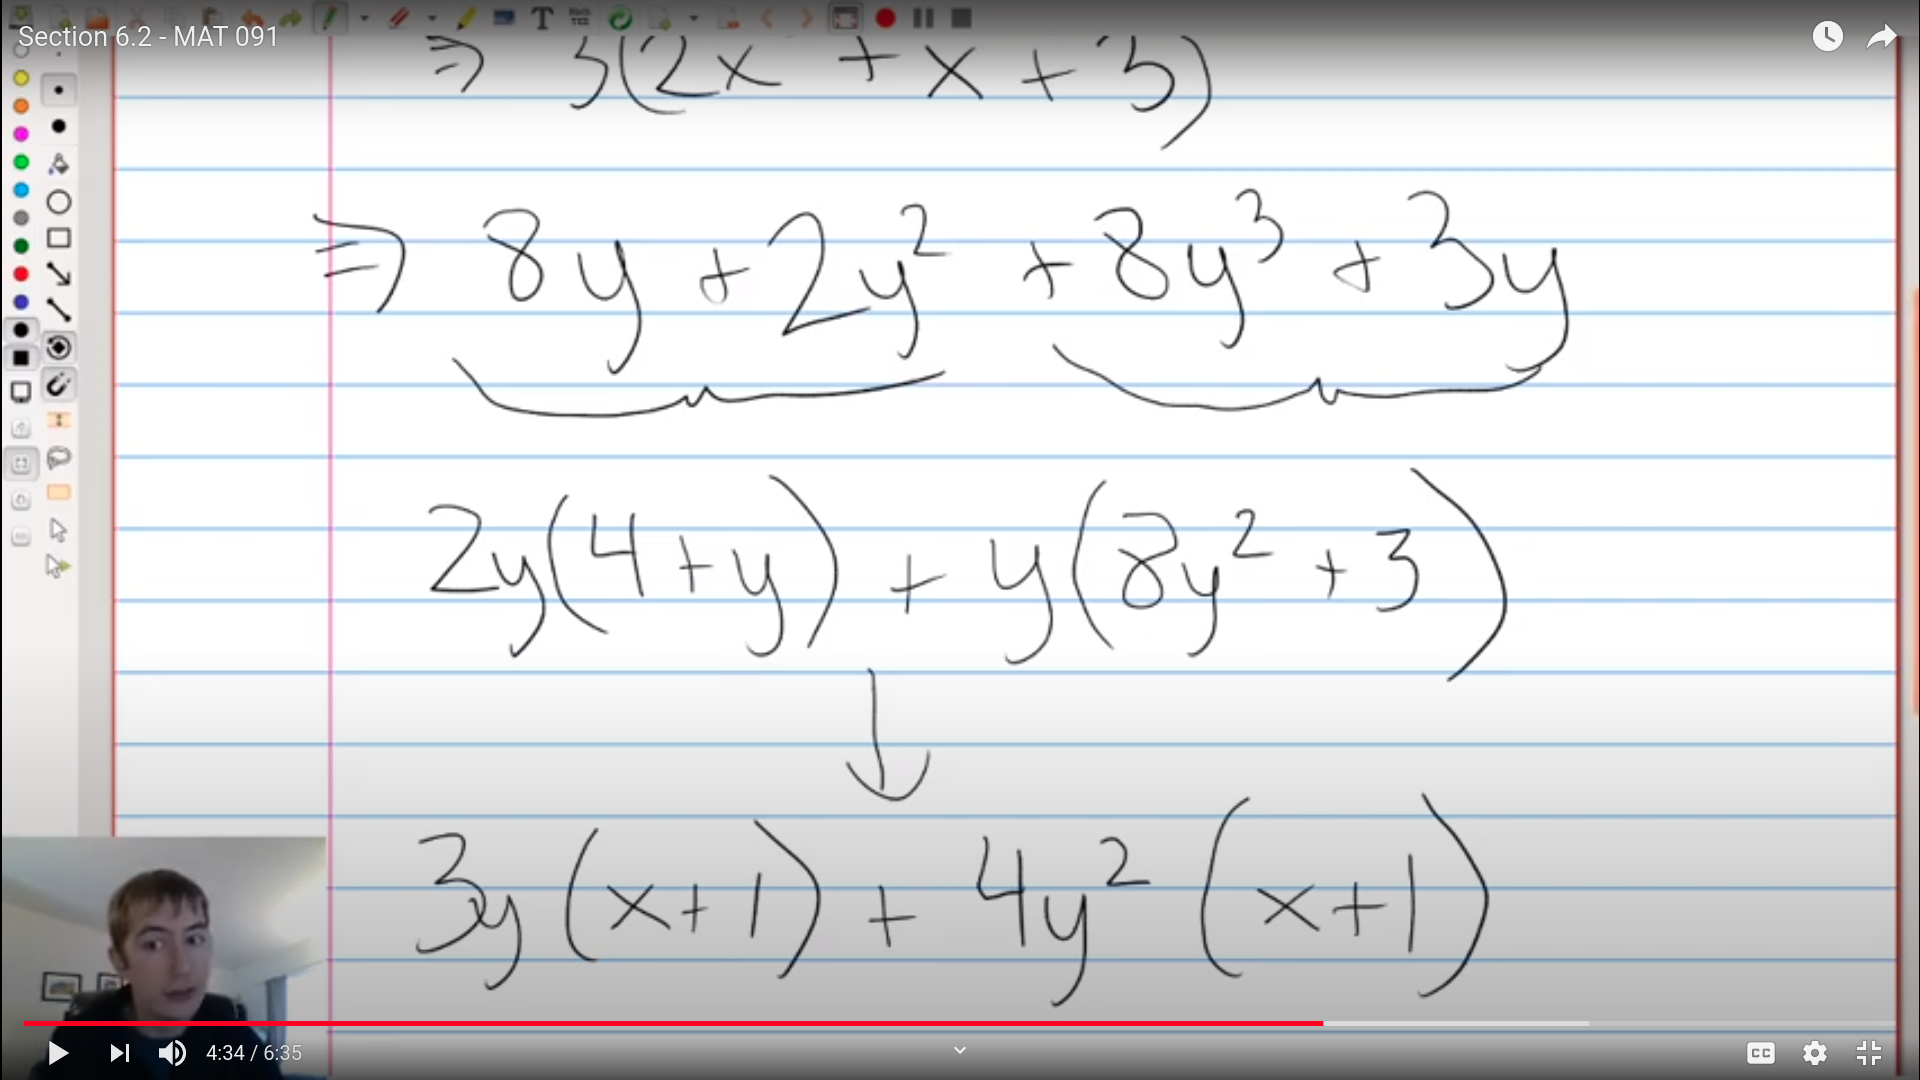 Section 6.2 - MAT 091
⇒ 3(2x + x + 3)
⇒ 8y + 2y² + 8y³ + 3y
2y(4+y) + y(8y² + 3)
↓
3y(x+1) + 4y²(x+1)
4:34 / 6:35
CC